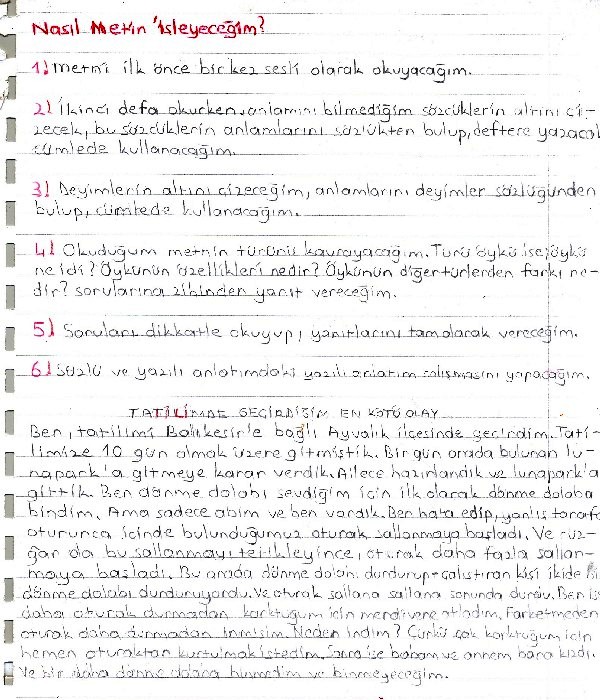 Nasıl Metin işleyeceğim?
1) Metni ilk önce bir kez sesli olarak okuyacağım.
2) İkinci defa okurken, anlamını bilmediğim sözcüklerin altını çi-
zecek, bu sözcüklerin anlamlarını sözlükten bulup, deftere yazacak
cümlede kullanacağım.
3) Deyimlerin altını çizeceğim, anlamlarını deyimler sözlüğünden
bulup, cümlede kullanacağım.
4) Okuduğum metnin türünü kavrayacağım. Türü öykü ise; öykü
ne idi? Öykünün özellikleri nedir? Öykünün diğer türlerden farkı ne-
dir? sorularına zihinden yanıt vereceğim.
5) Soruları dikkatle okuyup, yanıtlarını tam olarak vereceğim.
6) Sözlü ve yazılı anlatımdaki yazılı anlatım çalışmasını yapacağım.
TATİLİMDE GEÇİRDİĞİM EN KÖTÜ OLAY
Ben, tatilimi Balıkesir'e bağlı Ayvalık ilçesinde geçirdim. Tati-
limize 10 gün olmak üzere gitmiştik. Bir gün orada bulunan lu-
napark'a gitmeye karar verdik. Ailece hazırlandık ve lunapark'a
gittik. Ben dönme dolabı sevdiğim için ilk olarak dönme dolaba
bindim. Ama sadece abim ve ben vardık. Ben hata edip, yanlış tarafa
oturunca içinde bulunduğumuz oturak sallanmaya başladı. Ve rüz-
ğar da bu sallanmayı tetikleyince, oturak daha fazla sallan-
maya başladı. Bu arada dönme dolabı durdurup-çalıştıran kişi ikide bi
dönme dolabı durduruyordu. Ve oturak sallana sallana sonunda durdu. Ben is
daha oturak durmadan korktuğum için merdivene atladım. Farketmeden
oturak daha durmadan inmişim. Neden indim? Çünkü çok korktuğum için
hemen oturaktan kurtulmak istedim. Sonra ise babam ve annem bana kızdı.
Ve bir daha dönme dolaba binmedim ve binmeyeceğim.